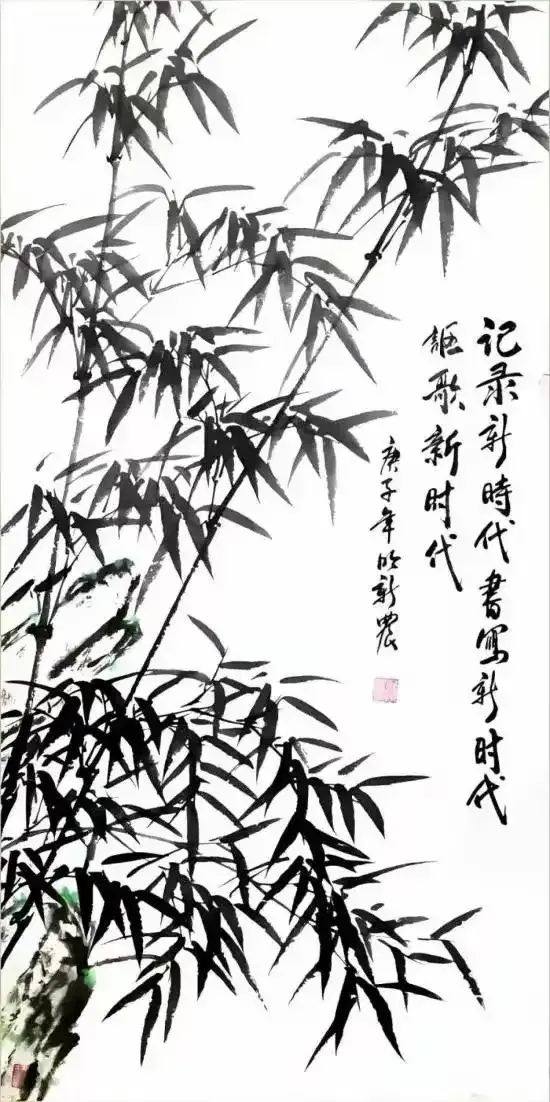 记录新時代書寫新时代
讴歌新时代
庚子年 新農